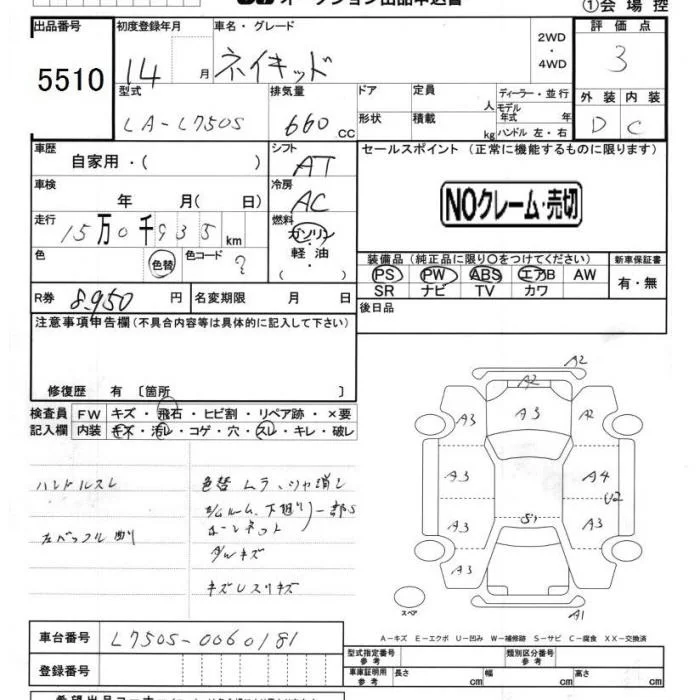 オークション出品申込書
①会場控
出品番号
5510
初度登録年月
14 月
車名・グレード
ネイキッド
2WD
・
4WD
評価点
3
型式
LA-L750S
排気量
660 CC
ドア
形状
定員
人
積載
kg
ディーラー・並行
モデル年式 年
ハンドル 左・右
外装 内装
D C
車歴
自家用・( )
シフト
AT
セールスポイント (正常に機能するものに限ります)
NOクレーム・売切
車検
年 月( 日)
冷房
AC
走行
15万0千935km
燃料
ガソリン
軽油
・( )
色
色替
色コード ?
装備品 (純正品に限り○をつけてください)
PS PW ABS エアB AW
SR ナビ TV カワ
新車保証書
有・無
R券 8,950 円
名変期限 月 日
後日品
注意事項申告欄(不具合内容等は具体的に記入して下さい)
修復歴 有 〔箇所 〕
検査員 FW キズ・飛石・ヒビ割・リペア跡・×要
記入欄 内装 キズ・汚レ・コゲ・穴・スレ・キレ・破レ
ハンドルスレ
色替 ムラ
下廻り
一部S
キズ
A2
A2
A3
A3
A2
A3
A4
U2
A3
A3
S1
A3
A1
スペア
A−キズ E−エクボ U−凹み W−補修跡 S−サビ C−腐食 XX−交換済
車台番号 L750S-0060181
登録番号
型式指定番号
参考
類別区分番号
参考
車庫証明用
参考
長さ cm
幅 cm
高さ cm